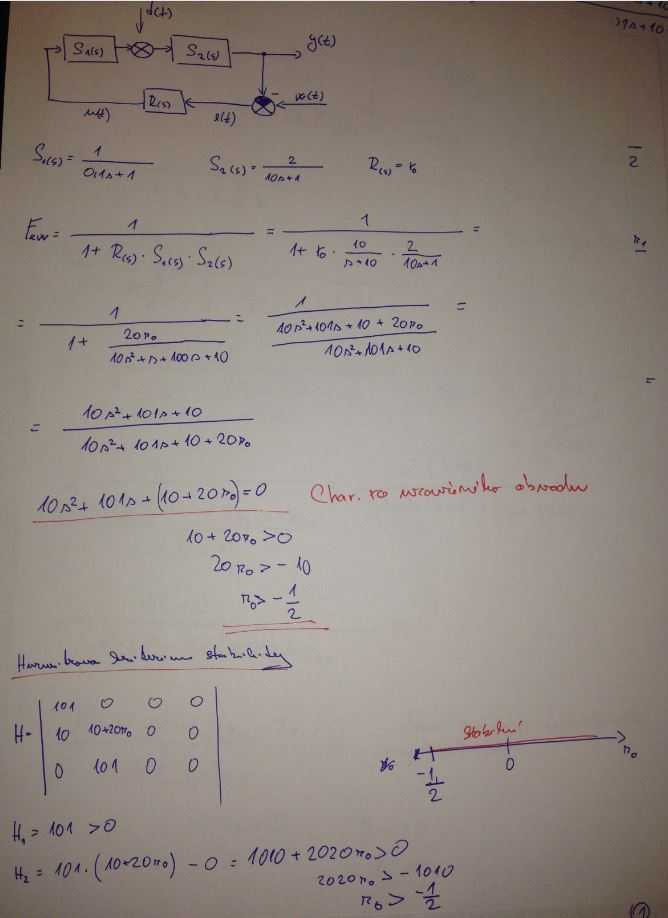 d(t)
S₁(s) S₂(s) y(t)
R(s) - w(t)
u(t) e(t)
S₁(s) = 1/(0,1s+1) S₂(s) = 2/(10s+1) R(s) = r₀
= 1/(1+ R(s) · S₁(s) · S₂(s)) = 1/(1+ r₀ · 10/(s+10) · 2/(10s+1)) =
= 1/(1+ 20r₀/(10s²+s+100s+10)) = 1/((10s²+101s+10+20r₀)/(10s²+101s+10)) =
= (10s²+101s+10)/(10s²+101s+10+20r₀)
10s²+101s+(10+20r₀)=0 Char. ro uzavřeného obvodu
10+20r₀>0
20r₀>-10
r₀>-1/2
Hurwitzovo kritérium stability
H= | 101 0 0 0 |
| 10 10+20r₀ 0 0 |
| 0 101 0 0 |
Stabilní
-1/2 0 r₀
H₁ = 101 >0
H₂ = 101·(10+20r₀) - 0 = 1010+2020r₀>0
2020r₀>-1010
r₀ > -1/2
1